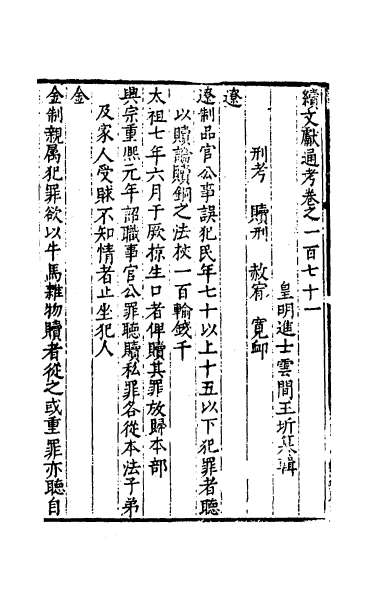 續文獻通考卷之一百七十一
皇明進士雲間王圻纂輯
刑考 贖刑 赦宥 寬卹
遼
遼制品官公事誤犯民年七十以上十五以下犯罪者聽
以贖論贖銅之法杖一百輸錢千
太祖七年六月于厥掠生口者俾贖其罪放歸本部
興宗重熙元年詔職事官公罪聽贖私罪各從本法子弟
及家人受賕不知情者止坐犯人
金
金制親属犯罪欲以牛馬雜物贖者從之或重罪亦聽自